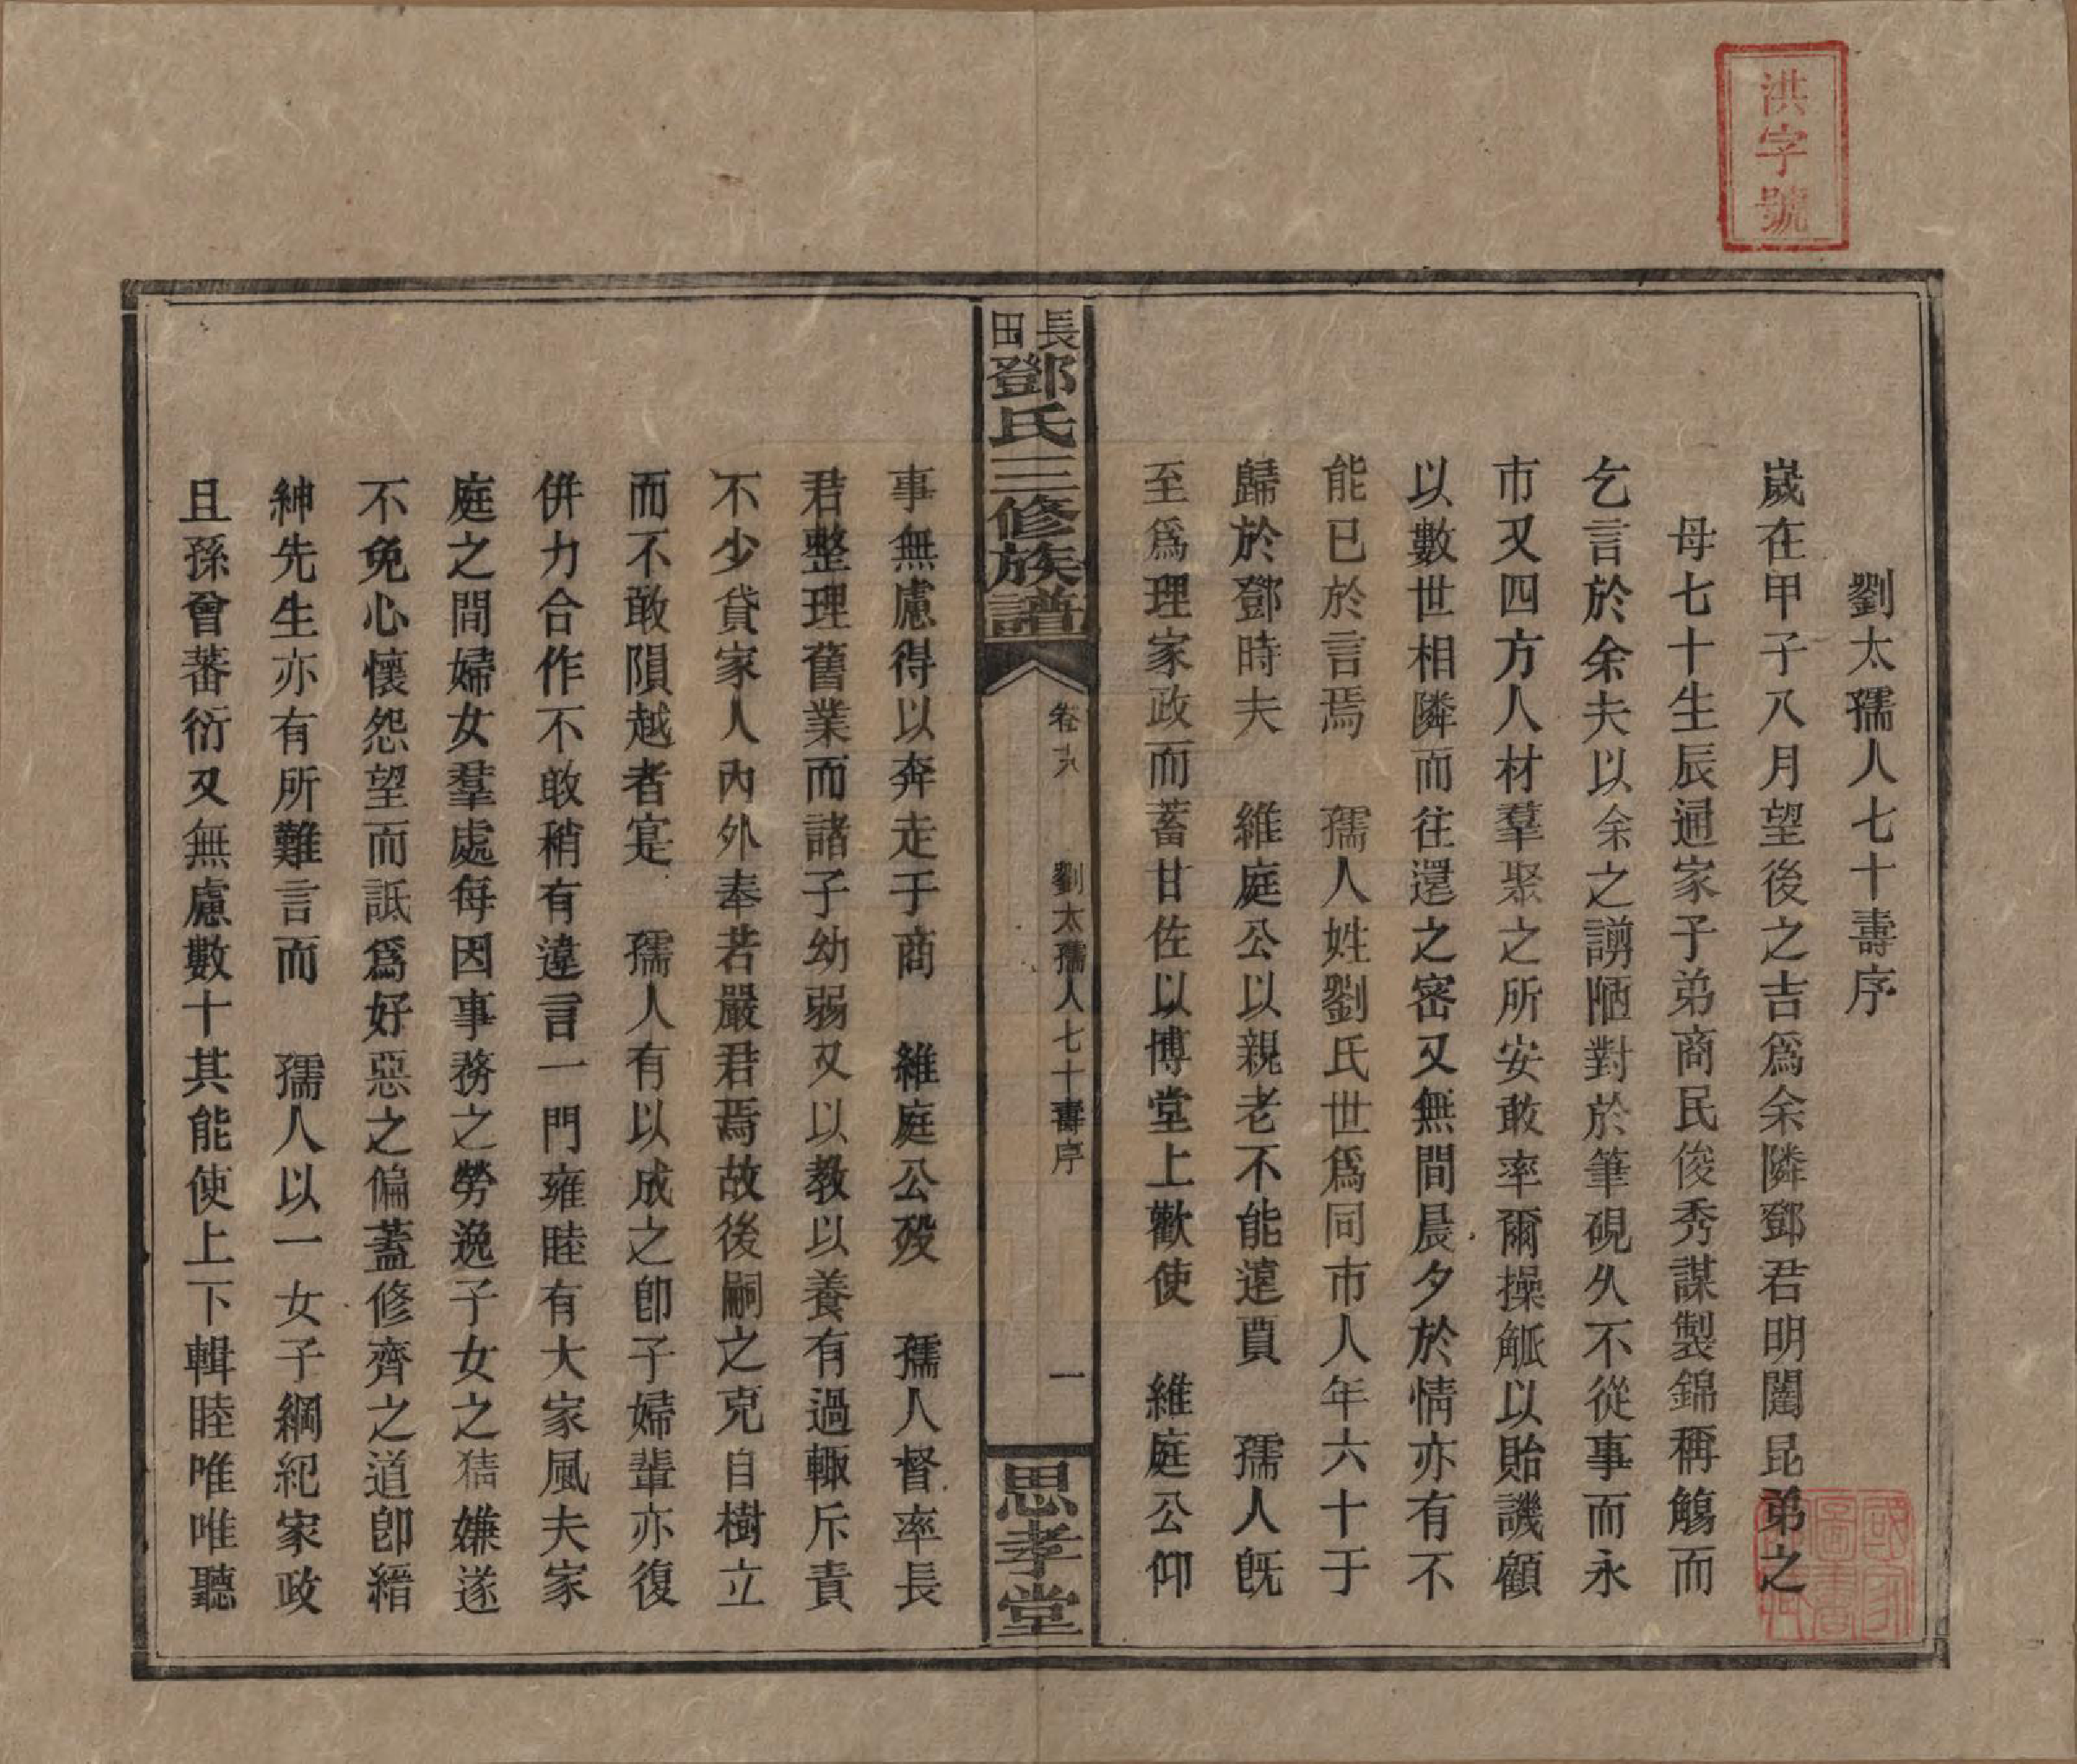 洪字號
劉太孺人七十壽序
歲在甲子八月望後之吉爲余隣鄧君明闓昆弟之
母七十生辰通家子弟商民俊秀謀製錦稱觴而
乞言於余夫以余之謭陋對於筆硯久不從事而永
市又四方人材羣聚之所安敢率爾操觚以貽譏顧
以數世相隣而往還之密又無間晨夕於情亦有不
能已於言焉　孺人姓劉氏世爲同市人年六十于
歸於鄧時夫　維庭公以親老不能遠賈　孺人既
至爲理家政而蓄甘佐以博堂上歡使　維庭公仰
長田鄧氏三修族譜
卷
劉太孺人七十壽序
一
思孝堂
事無慮得以奔走于商　維庭公歿　孺人督率長
君整理舊業而諸子幼弱又以教以養有過輙斥責
不少貸家人內外奉若嚴君焉故後嗣之克自樹立
而不敢隕越者寔　孺人有以成之卽子婦輩亦復
併力合作不敢稍有違言一門雍睦有大家風夫家
庭之間婦女羣處每因事務之勞逸子女之猜嫌遂
不免心懷怨望而詆爲好惡之偏蓋修齊之道卽縉
紳先生亦有所難言而　孺人以一女子綱紀家政
且孫曾蕃衍又無慮數十其能使上下輯睦唯唯聽